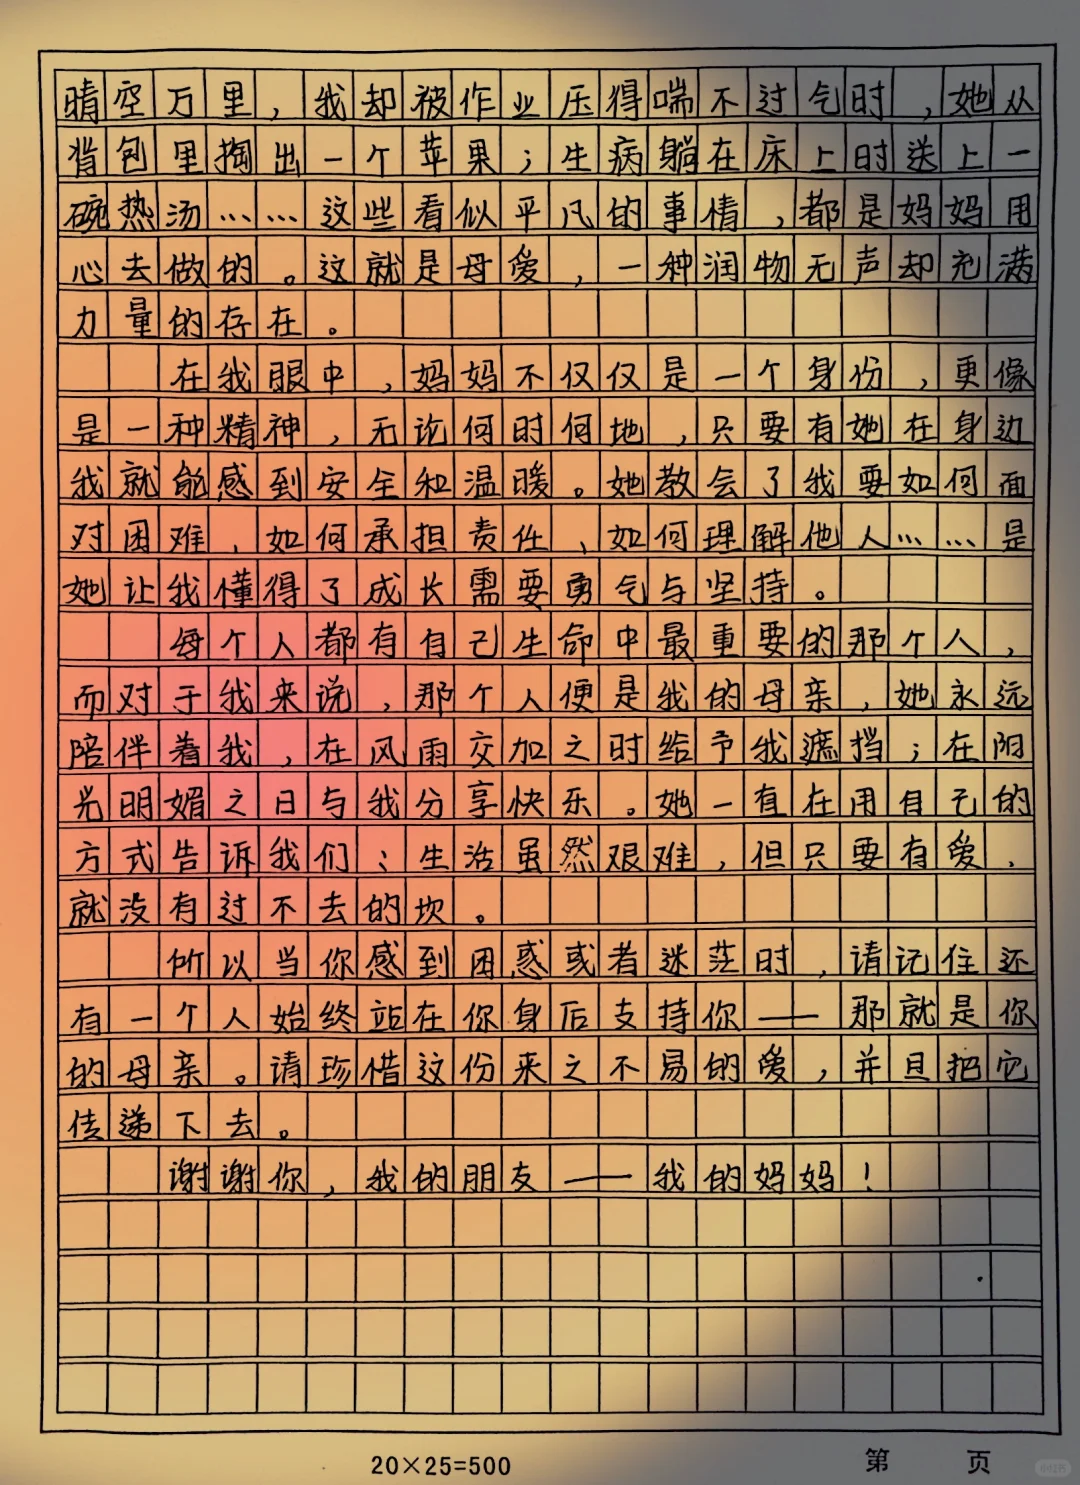 晴空万里，我却被作业压得喘不过气时，她从
背包里掏出一个苹果；生病躺在床上时送上一
碗热汤……这些看似平凡的事情，都是妈妈用
心去做的。这就是母爱，一种润物无声却充满
力量的存在。
在我眼中，妈妈不仅仅是一个身份，更像
是一种精神，无论何时何地，只要有她在身边
我就能感到安全和温暖。她教会了我要如何面
对困难、如何承担责任、如何理解他人……是
她让我懂得了成长需要勇气与坚持。
每个人都有自己生命中最重要的那个人，
而对于我来说，那个人便是我的母亲，她永远
陪伴着我，在风雨交加之时给予我遮挡；在阳
光明媚之日与我分享快乐。她一直在用自己的
方式告诉我们：生活虽然艰难，但只要有爱，
就没有过不去的坎。
所以当你感到困惑或者迷茫时，请记住还
有一个人始终站在你身后支持你——那就是你
的母亲。请珍惜这份来之不易的爱，并且把它
传递下去。
谢谢你，我的朋友——我的妈妈！
20×25=500
第 页
小红书